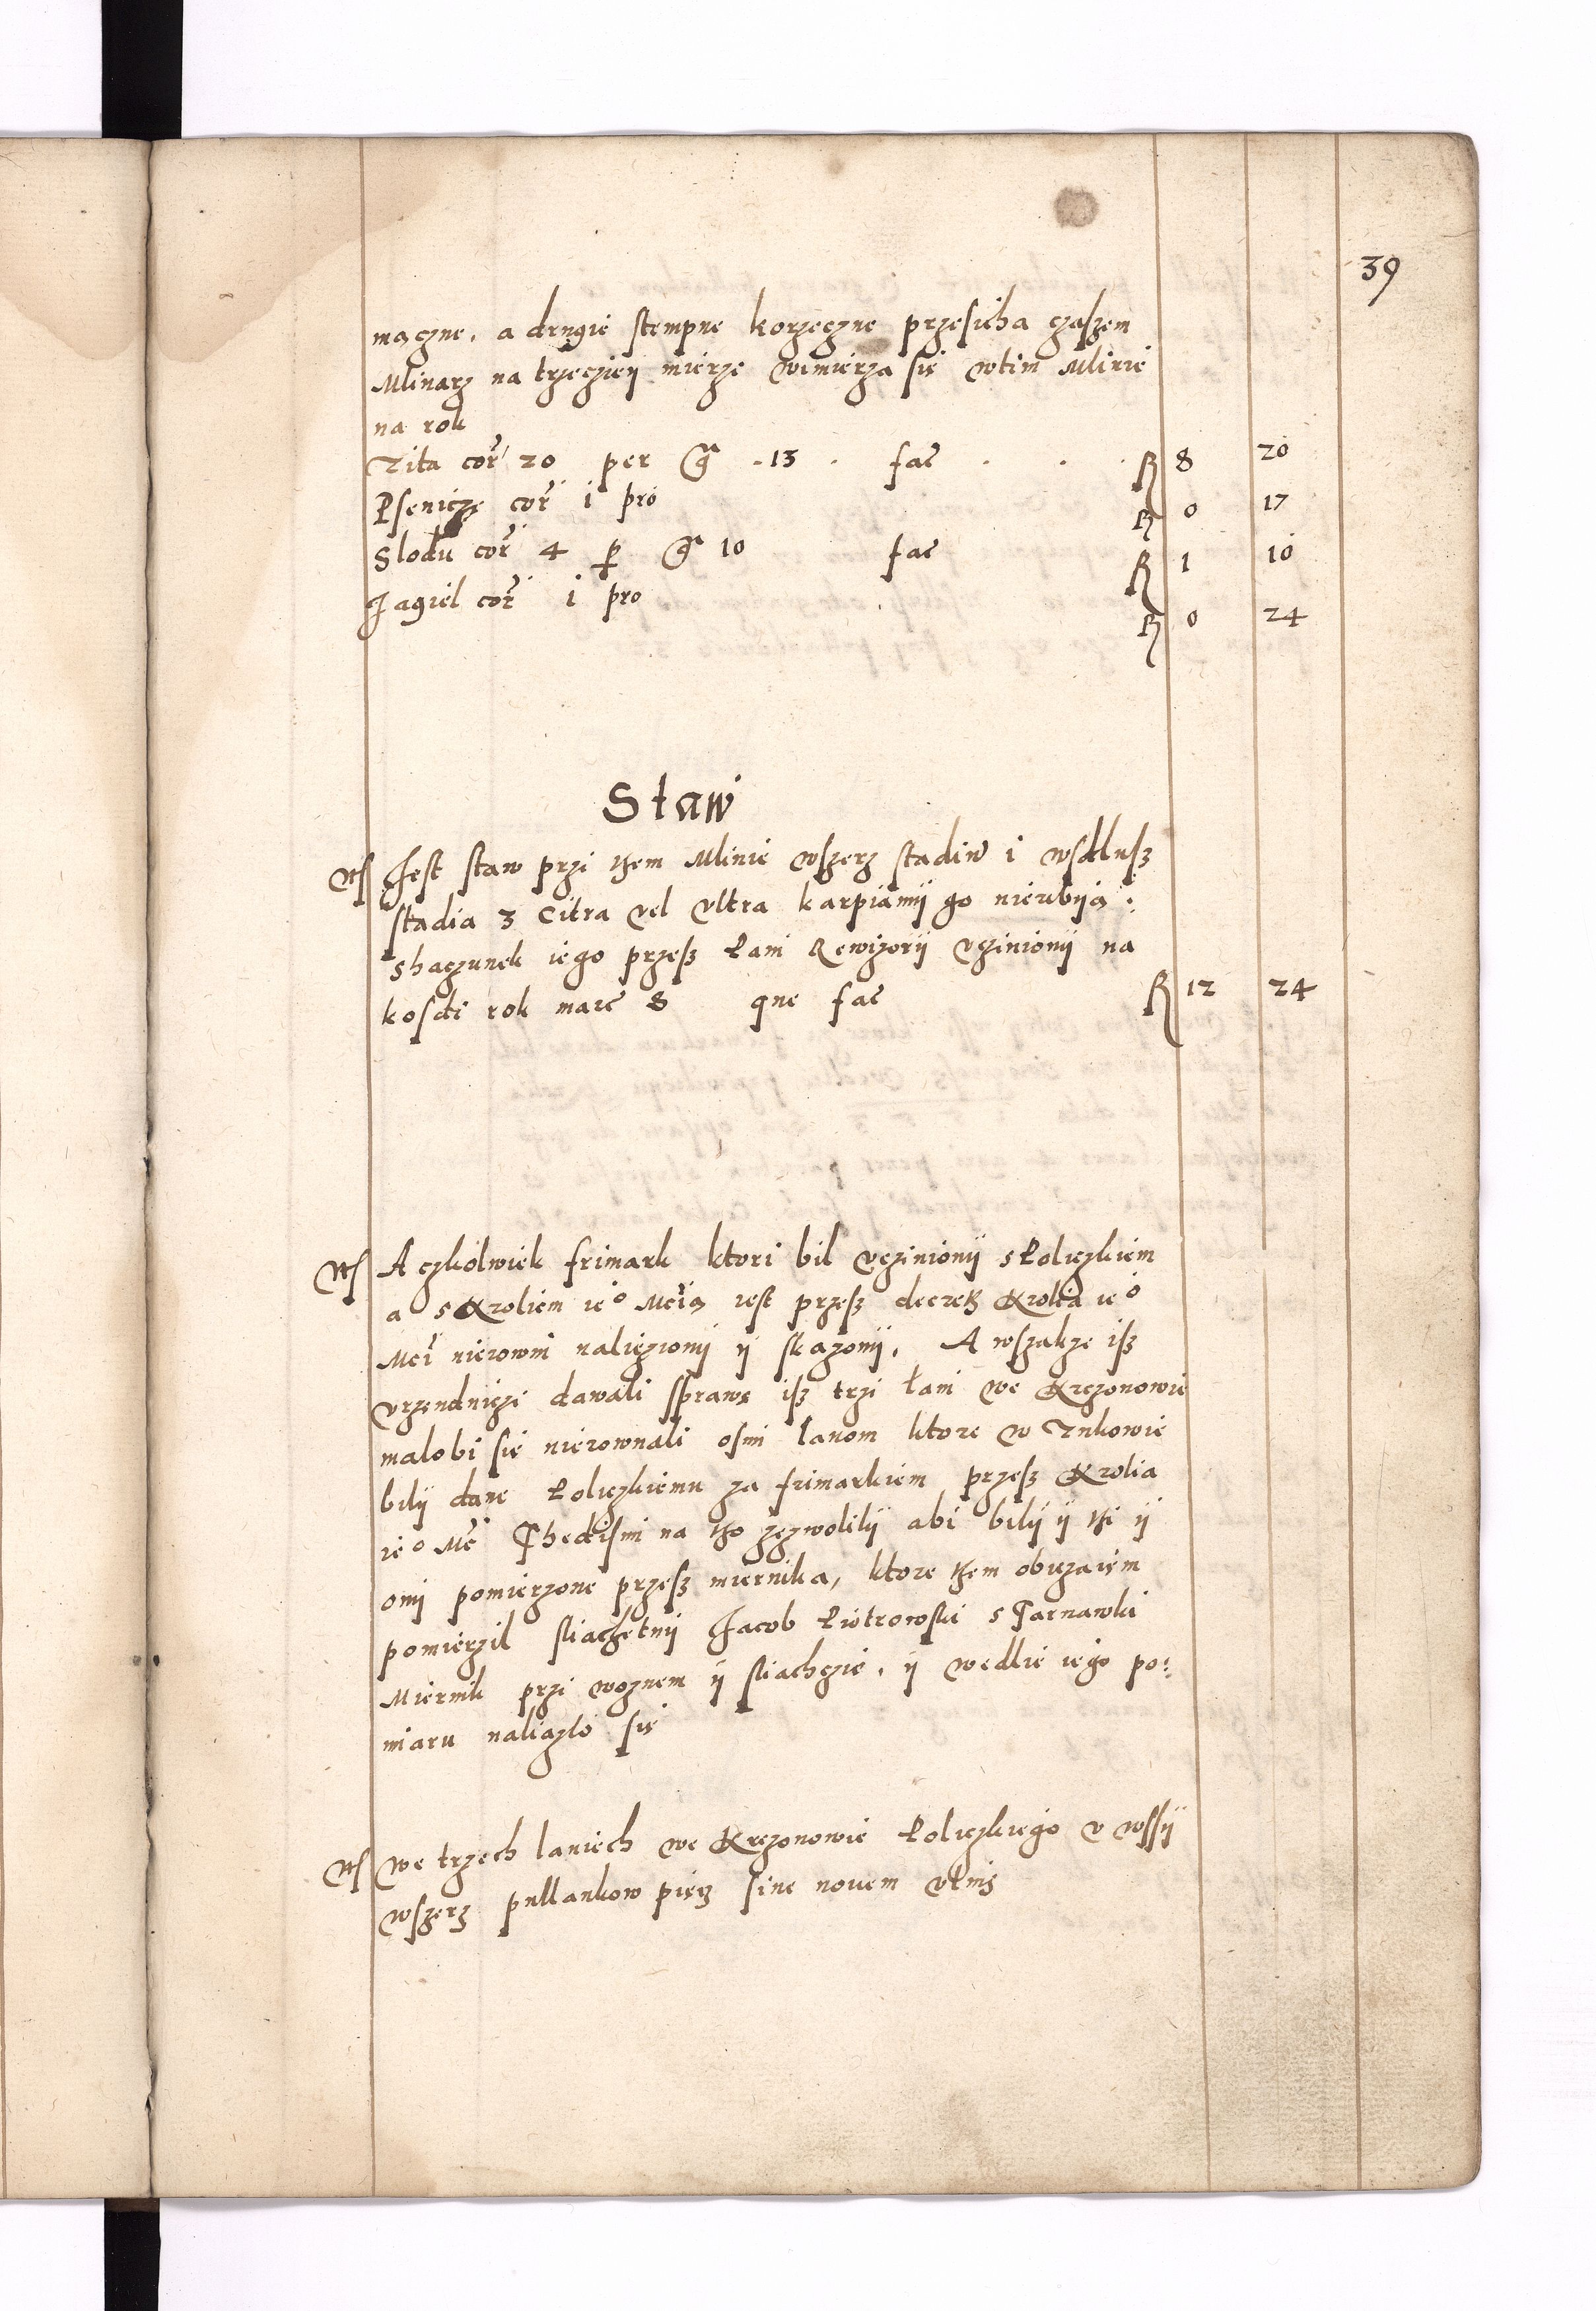 39
mączne, a drugie stempne korzeczne przesicha czaszem
Mlinarz na trzeczieij mierze wimierza się wtim Mlinie
na rok
Zita cor̃ 20 per gr̃ 13 . fac̃ . . . R 8 20
Psenicze cor̃ i pro R 0 17
Slodu cor̃ 4 p gr̃ 10 fac̃ R 1 10
Jagiel cor̃ i pro R 0 24
Staw
Jest staw przi them Mlinie wszerz stadiũ i wsdlusz
stadia 3 Citra vel vltra karpiamij go nieribija :
shaczunek iego przesz Pani Rewizorij vczinionij na
kosdi rok marc̃ 8 que fac̃ R 12 24
Aczkolwiek frimark ktori bil vczinionij s Policzkiem
a s Kroliem ieo Mc̃ią iest przesz decreth Krolia ieo
Mci nierowni naliezionij ij skazonij, A wszakze isz
vrzendniczi dawali sprawę isz trzi łani we Krczonowie
malobi się nierownali osmi lanom ktore w Zukowie
bilij dane Policzkiemu za frimarkiem przesz Krolia
ieo Mc̃ Thedismi na tho zezwolilij abi bilij ij thi ij
onij pomierzone przesz miernika, ktore them obiczaiem
pomierzil sliachetnij Jacob Piotrowski s Tarnawki
Miernik przi woznem ij sliachczie, ij wedlie iego po:
miaru naliazlo się
We trzech laniech we Krczonowie Policzkiego v wssij
wszerz pullankow pięcz sine nouem vlnis